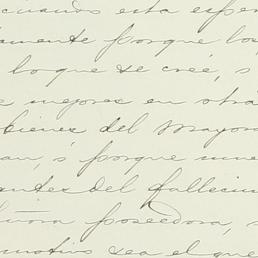 cuando esta esper
amente porque los
lo que se creé, s
e mejores en otra
bienes del Mayora
an, s porque mue
antes del fallecim
señora poseedora, s
motivo sea el que